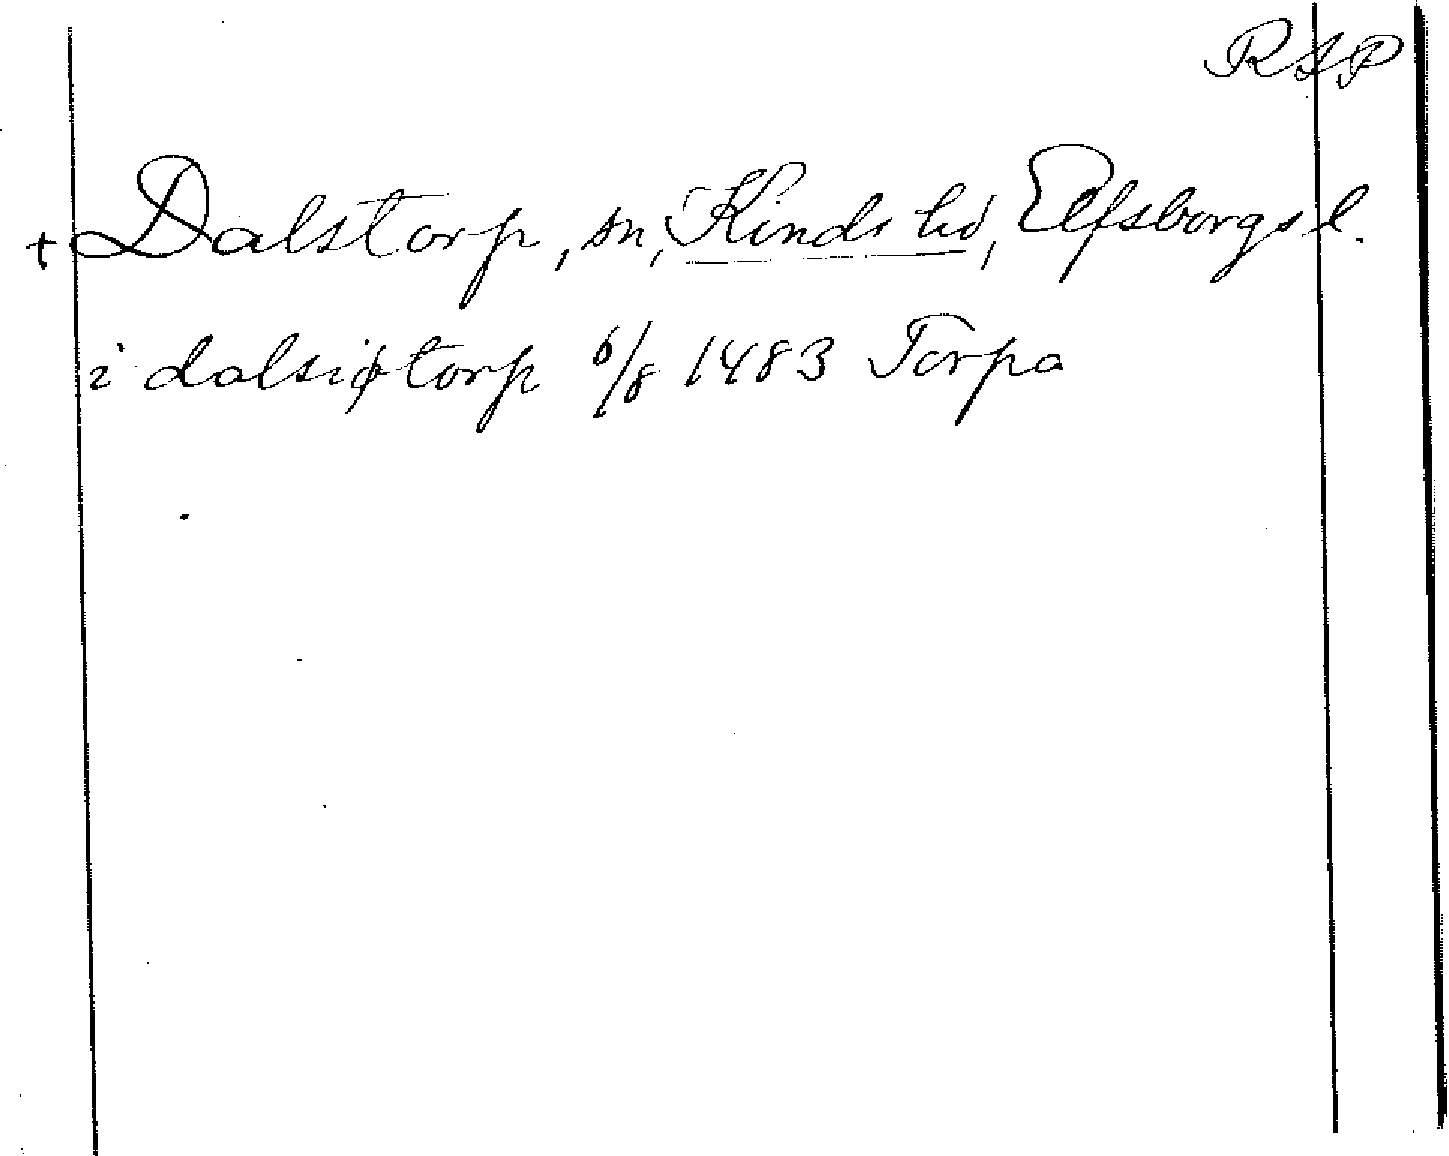 RAP
+ Dalstorp, sn, Kinds hd, Elfsborgs l.
i dalsiøtorp 6/8 1483 Torpa